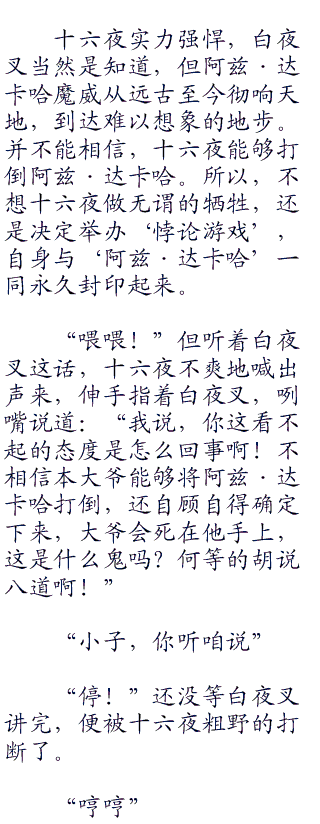 十六夜实力强悍，白夜
叉当然是知道，但阿兹·达
卡哈魔威从远古至今彻响天
地，到达难以想象的地步。
并不能相信，十六夜能够打
倒阿兹·达卡哈。所以，不
想十六夜做无谓的牺牲，还
是决定举办‘悖论游戏’，
自身与‘阿兹·达卡哈’一
同永久封印起来。
“喂喂！”但听着白夜
叉这话，十六夜不爽地喊出
声来，伸手指着白夜叉，咧
嘴说道：“我说，你这看不
起的态度是怎么回事啊！不
相信本大爷能够将阿兹·达
卡哈打倒，还自顾自得确定
下来，大爷会死在他手上，
这是什么鬼吗？何等的胡说
八道啊！”
“小子，你听咱说”
“停！”还没等白夜叉
讲完，便被十六夜粗野的打
断了。
“哼哼”